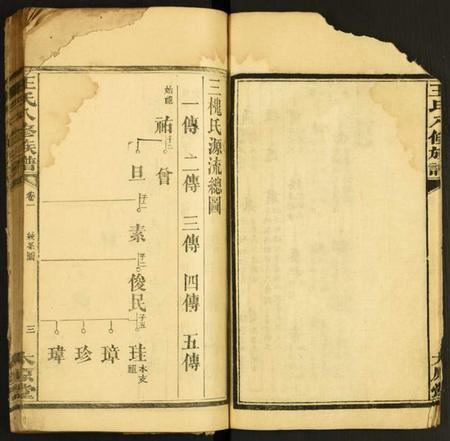 王氏八修族譜
太原堂
三槐氏源流總圖
一傳 二傳 三傳 四傳 五傳
始祖
祐
旦
素
俊民
子五
珪
本支祖
璋
珍
瑋
王氏八修族譜
卷一
三
太原堂